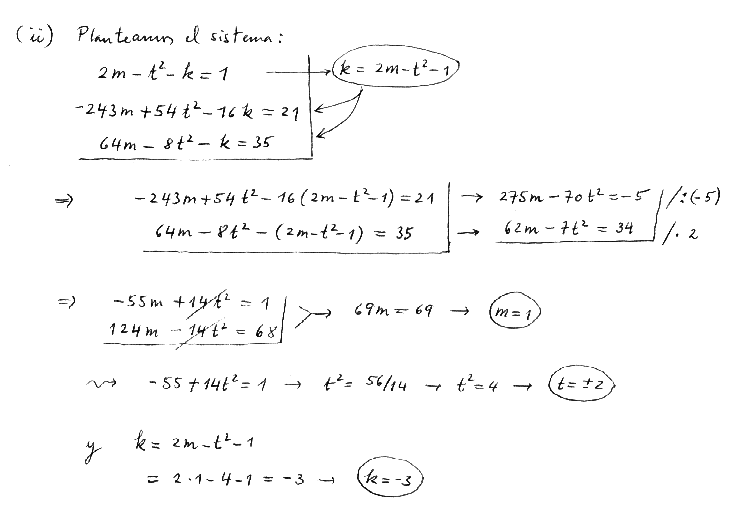 (ii) Planteamos el sistema:
2m - t² - k = 1 → k = 2m - t² - 1
-243m + 54t² - 16k = 21
64m - 8t² - k = 35
⇒ -243m + 54t² - 16(2m - t² - 1) = 21 → 275m - 70t² = -5 /:(-5)
64m - 8t² - (2m - t² - 1) = 35 → 62m - 7t² = 34 /· 2
⇒ -55m + 14t² = 1
124m - 14t² = 68 → 69m = 69 → m = 1
⇝ -55 + 14t² = 1 → t² = 56/14 → t² = 4 → t = ±2
y k = 2m - t² - 1
= 2·1 - 4 - 1 = -3 → k = -3